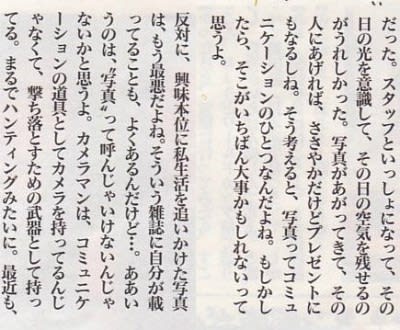 だった。スタッフといっしょになって、その
日の光を意識して、その日の空気を残せるの
がうれしかった。写真があがってきて、その
人にあげれば、ささやかだけどプレゼントに
もなるしね。そう考えると、写真ってコミュ
ニケーションのひとつなんだよね。もしかし
たら、そこがいちばん大事かもしれないって
思うよ。
反対に、興味本位に私生活を追いかけた写真
は、もう最悪だよね。そういう雑誌に自分が載
ってることも、よくあるんだけど…。ああい
うのは、〝写真〟って呼んじゃいけないんじゃ
ないかと思うよ。カメラマンは、コミュニケ
ーションの道具としてカメラを持ってるんじ
ゃなくて、撃ち落とすための武器として持っ
てる。まるでハンティングみたいに。最近も、